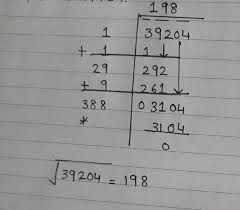 198
1 39204
+ 1 1
29 292
+ 9 261
388 03104
* 3104
0
√39204 = 198